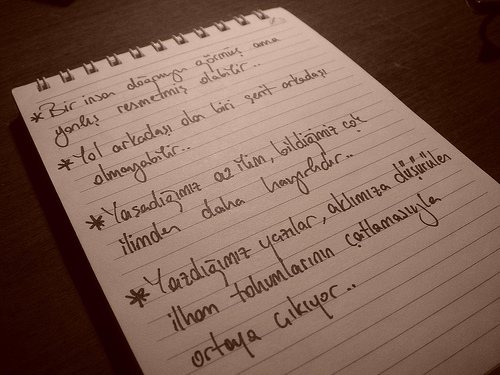 * Bir insan doğmuyu görmüş ama
yanlış resmetmiş olabilir..
* Yol arkadaşı olan biri şerit arkadaşı
olmayabilir..
* Yaşadığımız az ilim, bildiğimiz çok
ilimden daha hayırlıdır..
* Yazdığımız yazılar, aklımıza düşürülen
ilham tohumlarının çatlamasıyla
ortaya çıkıyor..